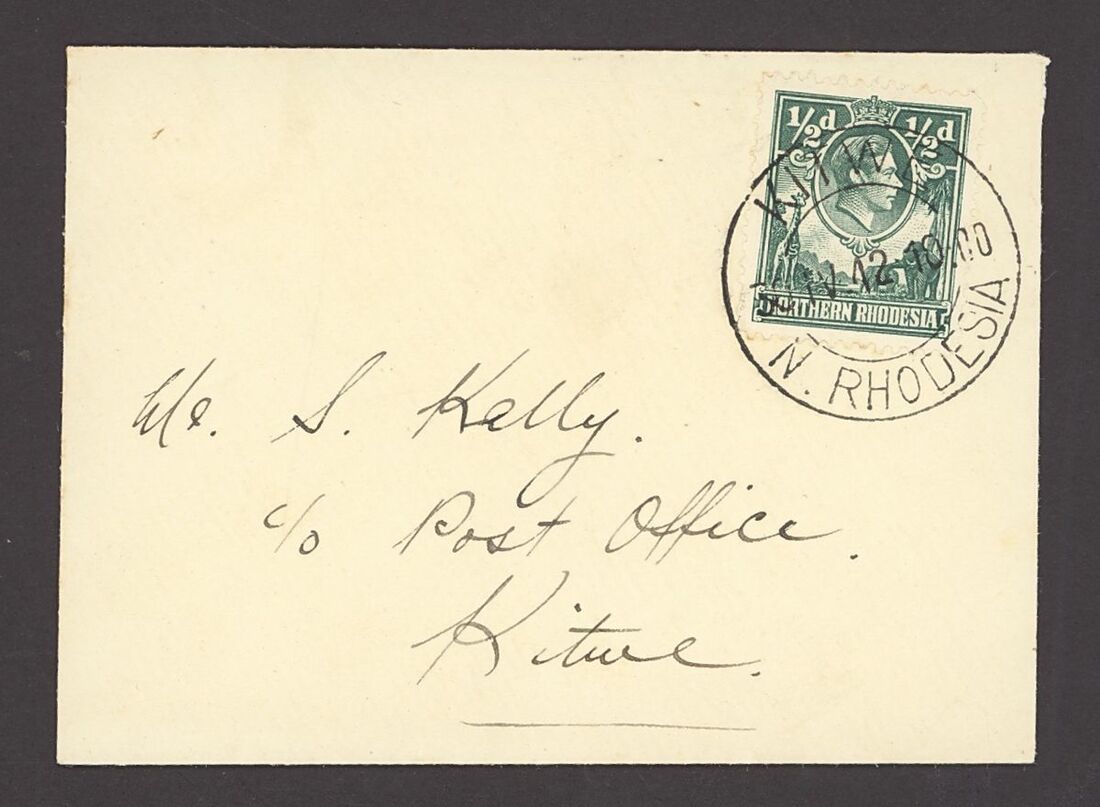 1/2d 1/2d
NORTHERN RHODESIA
KITWE
IV 42 10:00
N. RHODESIA
Mr. S. Kelly.
c/o Post Office.
Kitwe.